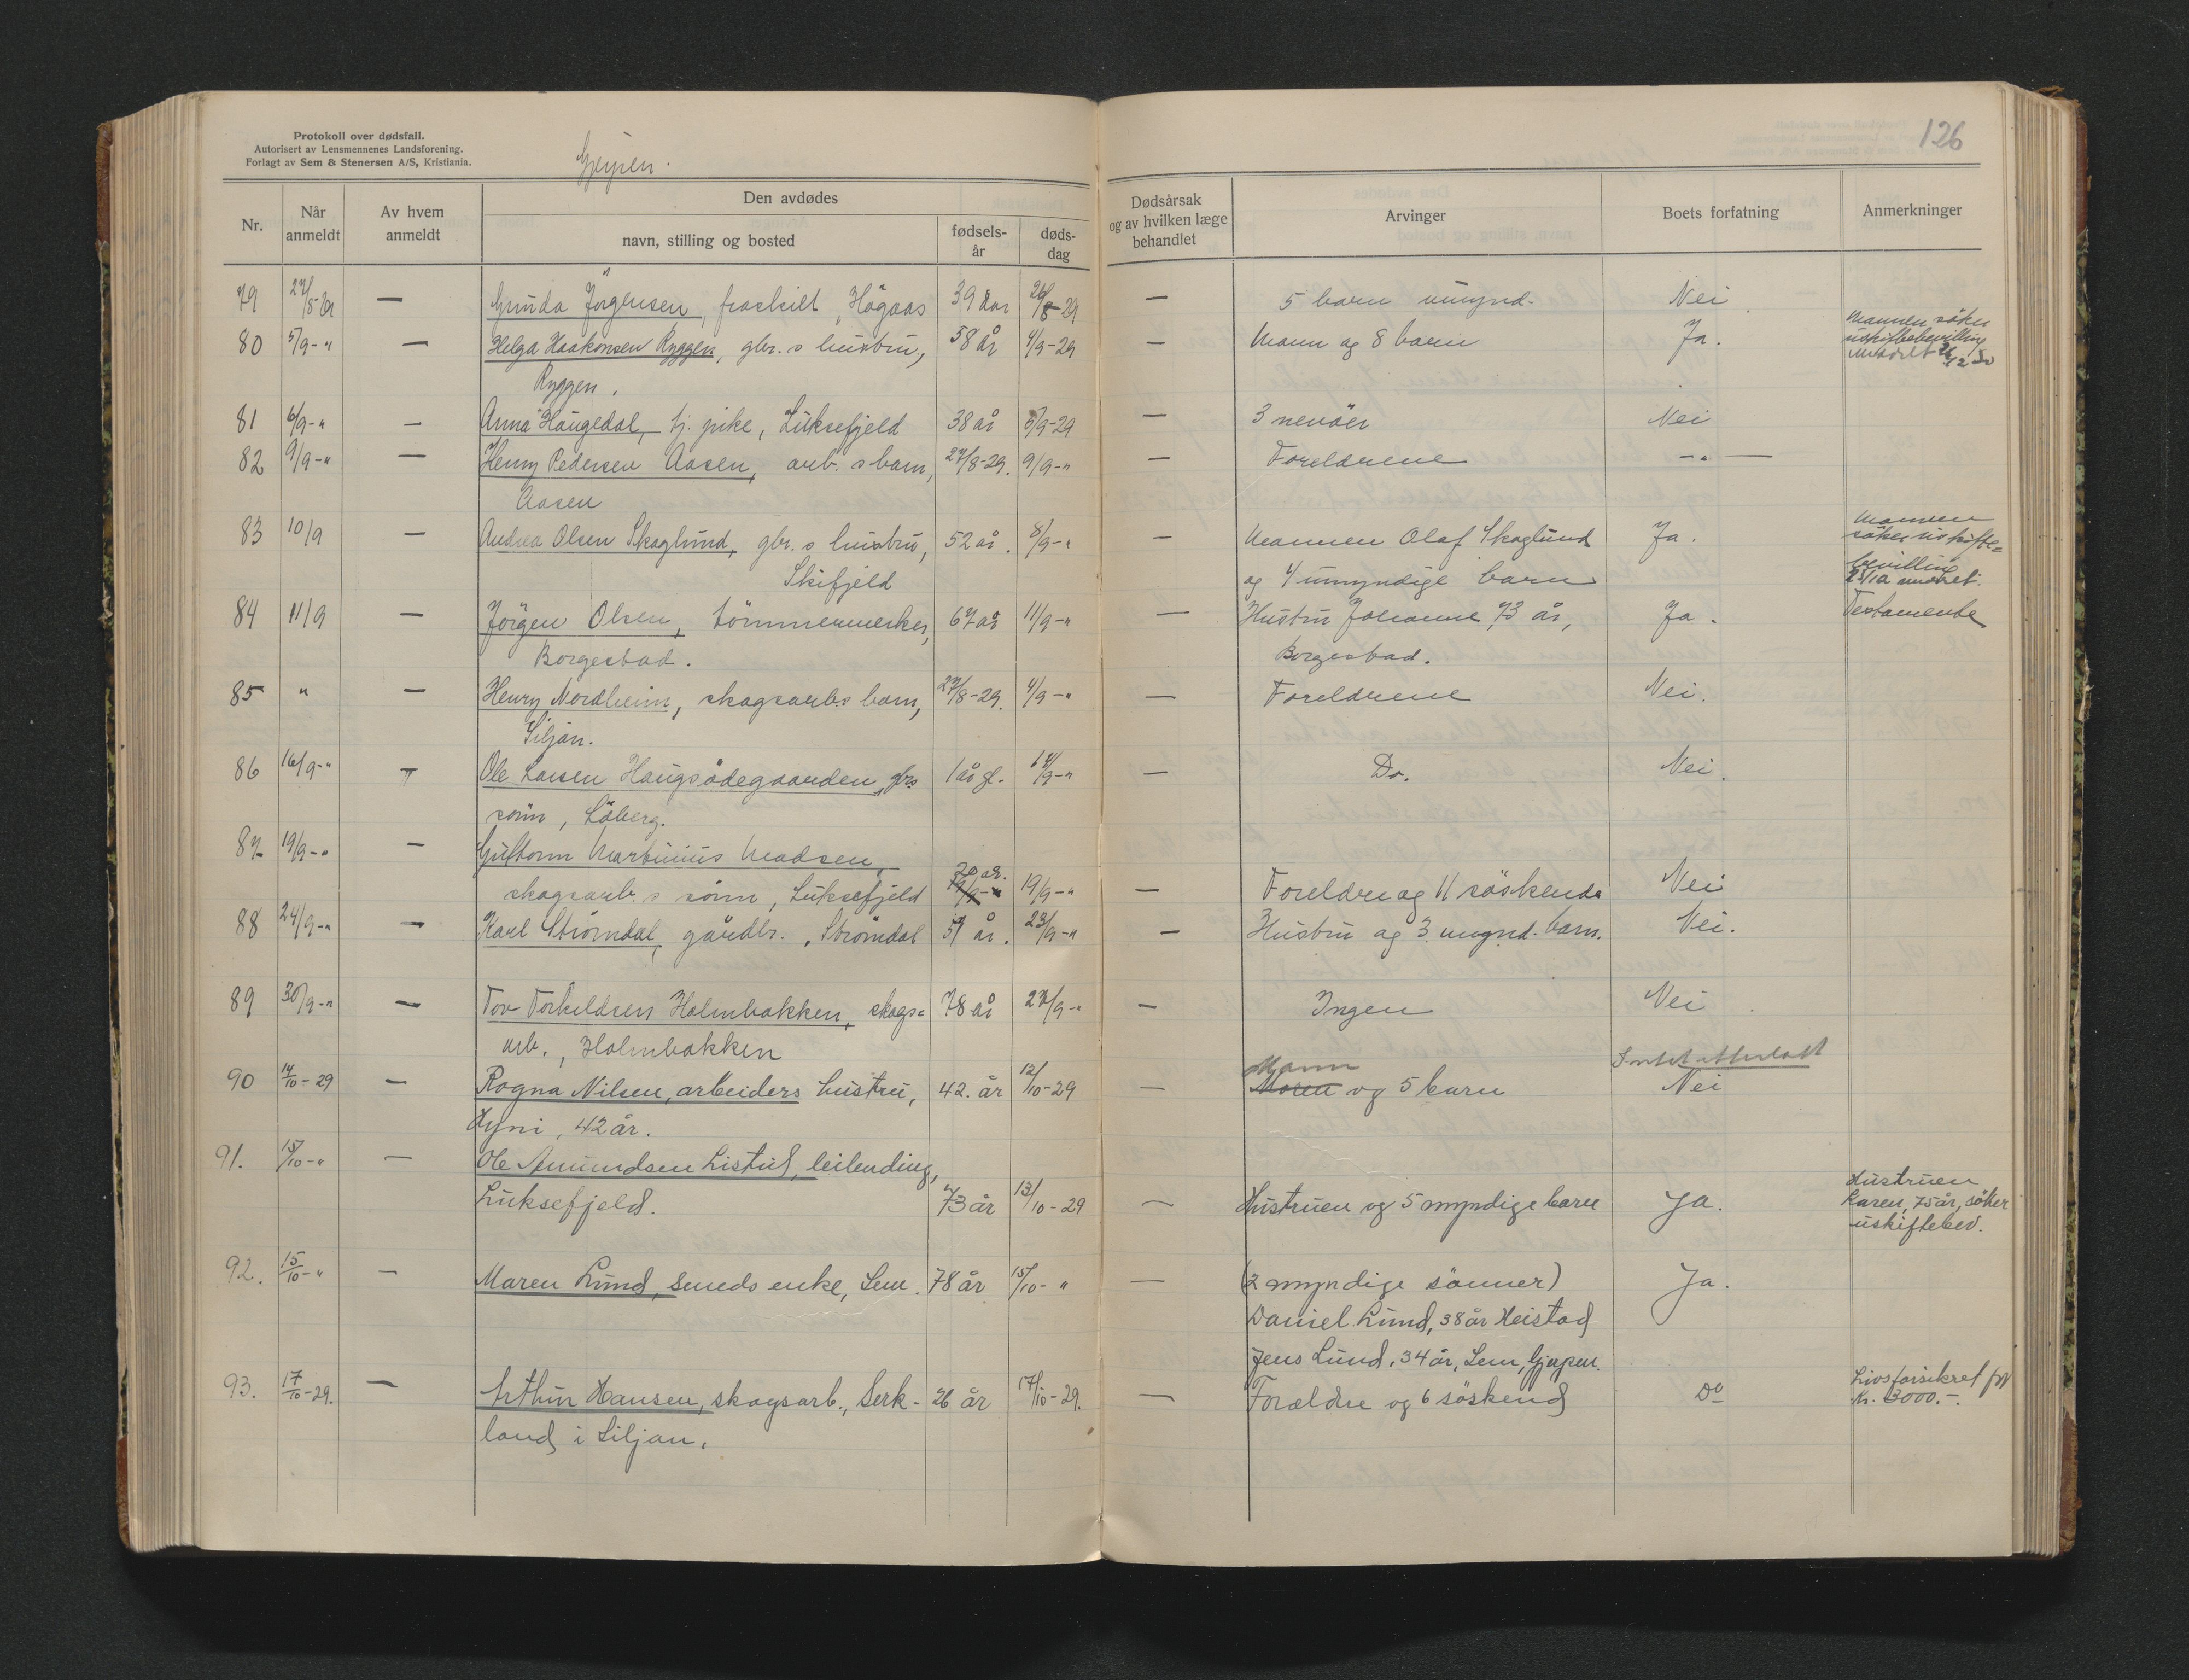 Protokoll over dødsfall.
Autorisert av Lensmennenes Landsforening.
Forlagt av Sem & Stenersen A/S, Kristiania.
Gjerpen.
126
Nr.
Når anmeldt
Av hvem anmeldt
Den avdødes
navn, stilling og bosted
fødsels-år
døds-dag
Dødsårsak og av hvilken læge behandlet
Arvinger
Boets forfatning
Anmerkninger
79 27/8-29 — Gunda Jørgensen, fraskilt, Högaas 39 aar 26/8-29 — 5 barn umynd. Nei
80 5/9-" — Helga Haakonsen Ryggen, gbr.s hustru, 58 år 4/9-29 — Mann og 8 barn Ja. Mannen söker
uskiftebevilling
Ryggen.
81 6/9-" — Anna Haugedal, tj. pike, Luksefjeld 38 år 5/9-29 — 3 nevöer Nei
82 9/9-" — Henry Pedersen Aasen, arb.s barn, 27/8-29. 9/9-" — Foreldrene -"-
Aasen
83 10/9 — Andrea Olsen Skoglund, gbr.s hustru, 52 år. 8/9-" — Mannen Olaf Skoglund Ja. Mannen
söker uskifte=
Skifjeld og 4 umyndige barn bevilling
84 11/9 — Jörgen Olsen, tömmermerker, 67 år 11/9-" — Hustru Johanne, 73 år, Ja. Testamente
Borgestad. Borgestad.
85 " — Henry Nordheim, skogsarb.s barn, 27/8-29. 4/9-" — Foreldrene Nei.
Siljan.
86 16/9-" — Ole Larsen Haugsödegaarden, gbrs 1 år gl. 14/9-" — Do. Nei.
sönn, Löberg.
87 19/9-" — Guttorm Martinius Madsen,
skogsarb.s sönn, Luksefjeld 20 år. 19/9-" — Foreldre og 11 söskende Nei
88 24/9-" — Karl Strömdal, gårdbr., Strömdal 57 år. 23/9-" — Hustru og 3 umynd. barn. Nei.
89 30/9-" — Tov Torkildsen Holmbakken, skogs= 78 år 27/9-" — Ingen Nei
arb., Holmbakken
Intet efterlatt
90 14/10-29 — Ragna Nilsen, arbeiders hustru, 42. år 12/10-29 — Mann og 5 barn Nei
Hyni, 42 år.
91. 15/10-" — Ole Amundsen Listul, leilending,
Luksefjeld. 73 år 13/10-29 — Hustruen og 5 myndige barn Ja. Hustruen
Karen, 75 år, söker
uskiftebev.
92. 15/10-" — Maren Lund, smeds enke, Sem. 78 år 15/10-" — (2 myndige sönner) Ja.
Daniel Lund, 38 år Heistad
Jens Lund, 34 år, Sem, Gjerpen.
93. 17/10-29. — Arthur Hansen, skogsarb., Serk- 26 år 17/10-29. — Forældre og 6 söskend Do Livsforsikret for
Kr. 3000.-.
land i Siljan.